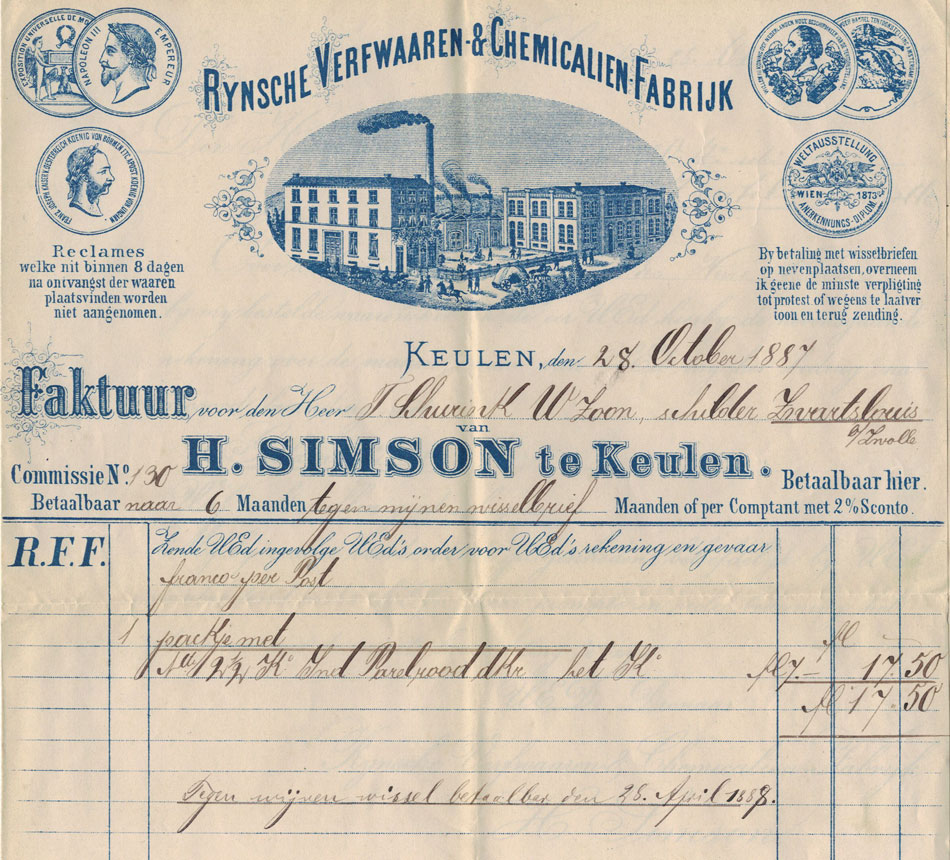 EXPOSITION UNIVERSELLE DE
NAPOLEON III EMPEREUR
RYNSCHE VERFWAAREN-&CHEMICALIEN-FABRIJK
FRANZ JOSEF I KAISER V. OESTERREICH KOENIG VON BÖHMEN ETC. APOST. KOENIG VON UNGARN
WELTAUSSTELLUNG
WIEN 1873
ANERKENNUNGS-DIPLOM
Reclames
welke nit binnen 8 dagen
na ontvangst der waaren
plaatsvinden worden
niet aangenomen.
By betaling met wisselbriefen
op nevenplaatsen, overneem
ik geene de minste verpligting
tot protest of wegens te laat ver
toon en terug zending.
KEULEN, den 28. October 1887
Faktuur voor den Heer Schurink W Zoon, schilder Zwartsluis
van
b/Zwolle
H. SIMSON te Keulen.
Commissie No. 130
Betaalbaar hier.
Betaalbaar naar 6 Maanden tegen mijnen wisselbrief Maanden of per Comptant met 2% Sconto.
R.F.F. Zende UEd ingevolge UEd's order voor UEd's rekening en gevaar
franco per Post
1 packje met fl -
2½ Ko Ind Parelrood dkr het Ko fl 7.- 17.50
fl 17.50
Tegen mijnen wissel betaalbar den 28. April 1888.